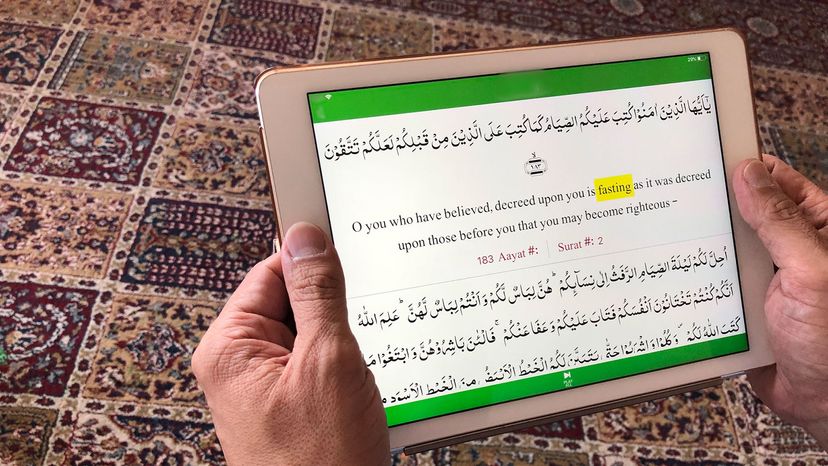 29%
يٰٓاَيُّهَا الَّذِيْنَ اٰمَنُوْا كُتِبَ عَلَيْكُمُ الصِّيَامُ كَمَا كُتِبَ عَلَى الَّذِيْنَ مِنْ قَبْلِكُمْ لَعَلَّكُمْ تَتَّقُوْنَ
لا
١٨٣
O you who have believed, decreed upon you is fasting as it was decreed
upon those before you that you may become righteous -
183 Aayat #: Surat #: 2
اُحِلَّ لَكُمْ لَيْلَةَ الصِّيَامِ الرَّفَثُ اِلٰى نِسَآىِٕكُمْ ؕ هُنَّ لِبَاسٌ لَّكُمْ وَ اَنْتُمْ لِبَاسٌ لَّهُنَّ ؕ عَلِمَ اللّٰهُ
اَنَّكُمْ كُنْتُمْ تَخْتَانُوْنَ اَنْفُسَكُمْ فَتَابَ عَلَيْكُمْ وَ عَفَا عَنْكُمْ ۚ فَالْـٰٔنَ بَاشِرُوْهُنَّ وَ ابْتَغُوْا مَا
كَتَبَ اللّٰهُ لَكُمْ ۪ وَ كُلُوْا وَ اشْرَبُوْا حَتّٰى يَتَبَيَّنَ لَكُمُ الْخَيْطُ الْاَبْيَضُ مِنَ الْخَيْطِ الْاَسْوَدِ
PLAY
ALL